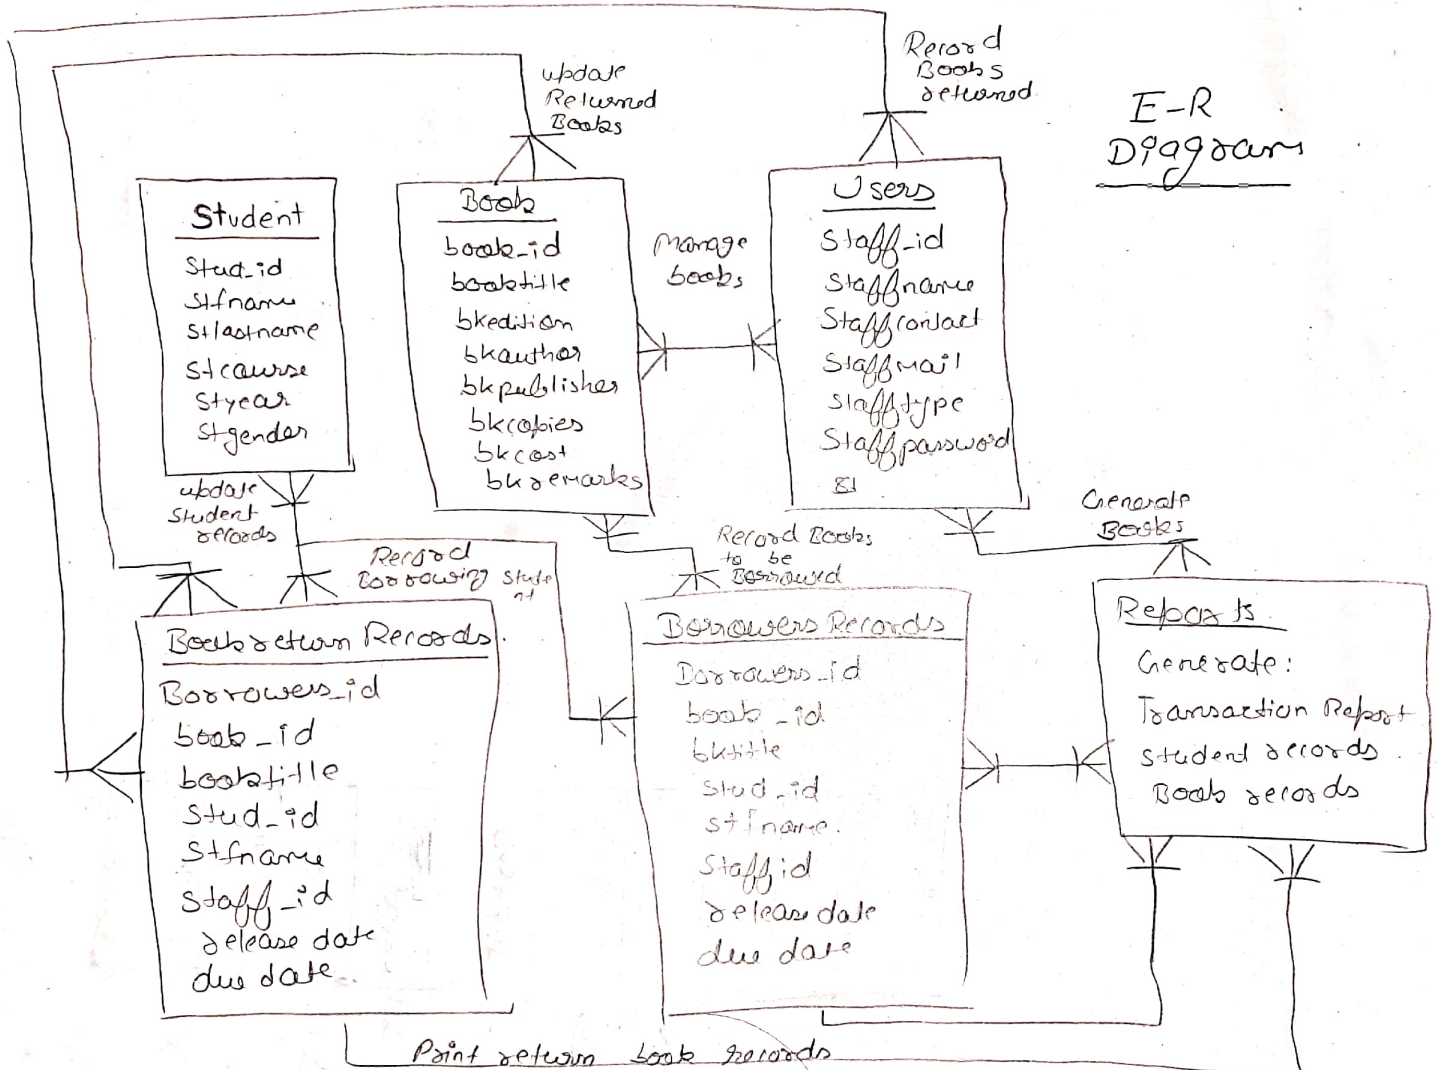 E-R
Diagram
Record
Books
returned
update
Returned
Books
Student
Stud_id
Stfname
Stlastname
Stcourse
Styear
Stgender
Book
book_id
booktitle
bkedition
bkauthor
bkpublisher
bkcopies
bkcost
bkremarks
Manage
books
Users
Staff_id
Staffname
Staffcontact
Staffmail
Stafftype
Staffpassword
update
Student
records
Record
Borrowing Stude
nt
Record Books
to be
Borrowed
Generate
Books
Book return Records.
Borrowers_id
book_id
booktitle
Stud_id
Stfname
Staff_id
release date
due date
Borrowers Records
Borrowers_id
book_id
bktitle
Stud_id
stfname.
Staff_id
release date
due date
Reports
Generate:
Transaction Report
Student records.
Book records
Print return book records